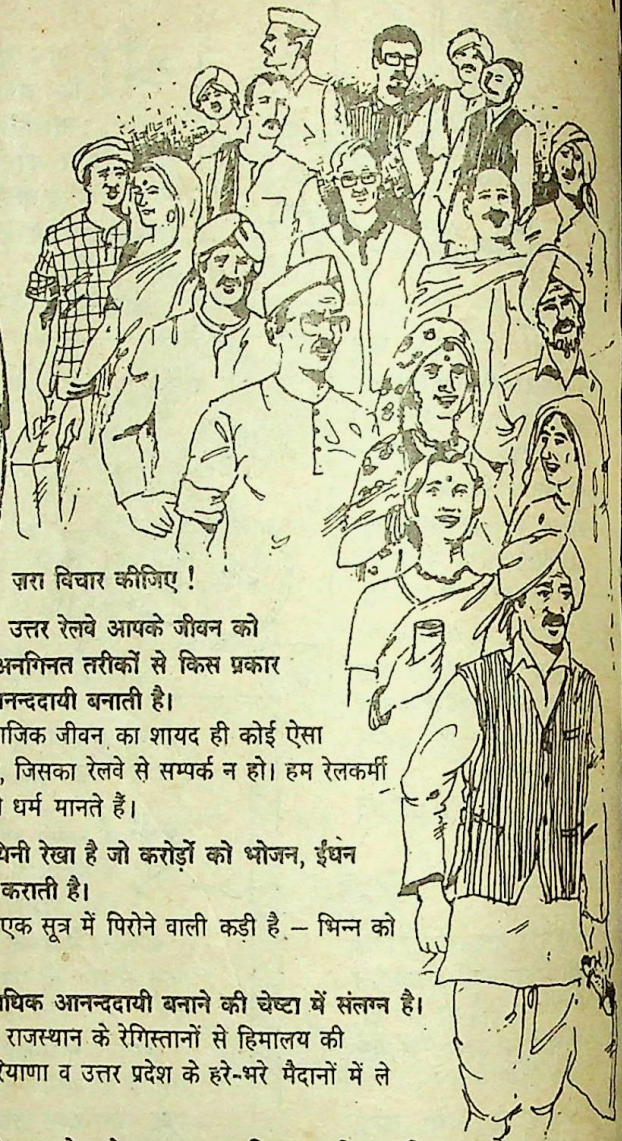 ज़रा विचार कीजिए !
उत्तर रेलवे आपके जीवन को
अनगिनत तरीकों से किस प्रकार
नन्ददायी बनाती है।
ाजिक जीवन का शायद ही कोई ऐसा
, जिसका रेलवे से सम्पर्क न हो। हम रेलकर्मी
धर्म मानते हैं।
रेखा है जो करोड़ों को भोजन, ईंधन
कराती है।
एक सूत्र में पिरोने वाली कड़ी है – भिन्न को
धिक आनन्ददायी बनाने की चेष्टा में संलग्न है।
राजस्थान के रेगिस्तानों से हिमालय की
रियाणा व उत्तर प्रदेश के हरे-भरे मैदानों में ले